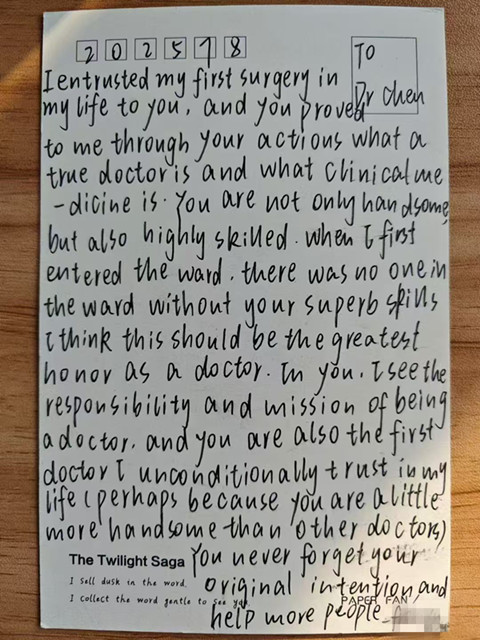 202578
TO
Dr chen
I entrusted my first surgery in
my life to you, and you proved
to me through your actions what a
true doctor is and what clinical me
-dicine is. You are not only handsome,
but also highly skilled. when I first
entered the ward. there was no one in
the ward without your superb skills
I think this should be the greatest
honor as a doctor. In you. I see the
responsibility and mission of being
a doctor. and you are also the first
doctor I unconditionally trust in my
life (perhaps because you are a little
more handsome than other doctors)
The Twilight Saga You never forget your
I sell dusk in the word. original intention and
I collect the word gentle to see you. PAPER FAN
help more people